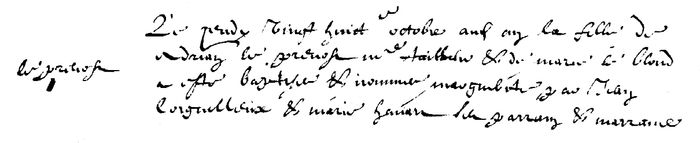 le prevost
Le jeudy vingt huict e octobre aud an la fille de
Adrian le prevost m e tailleur & de marie le blond
a esté baptisée & nommée margueritte par Jean
lorguilleux & marie havart les parrain & marraine